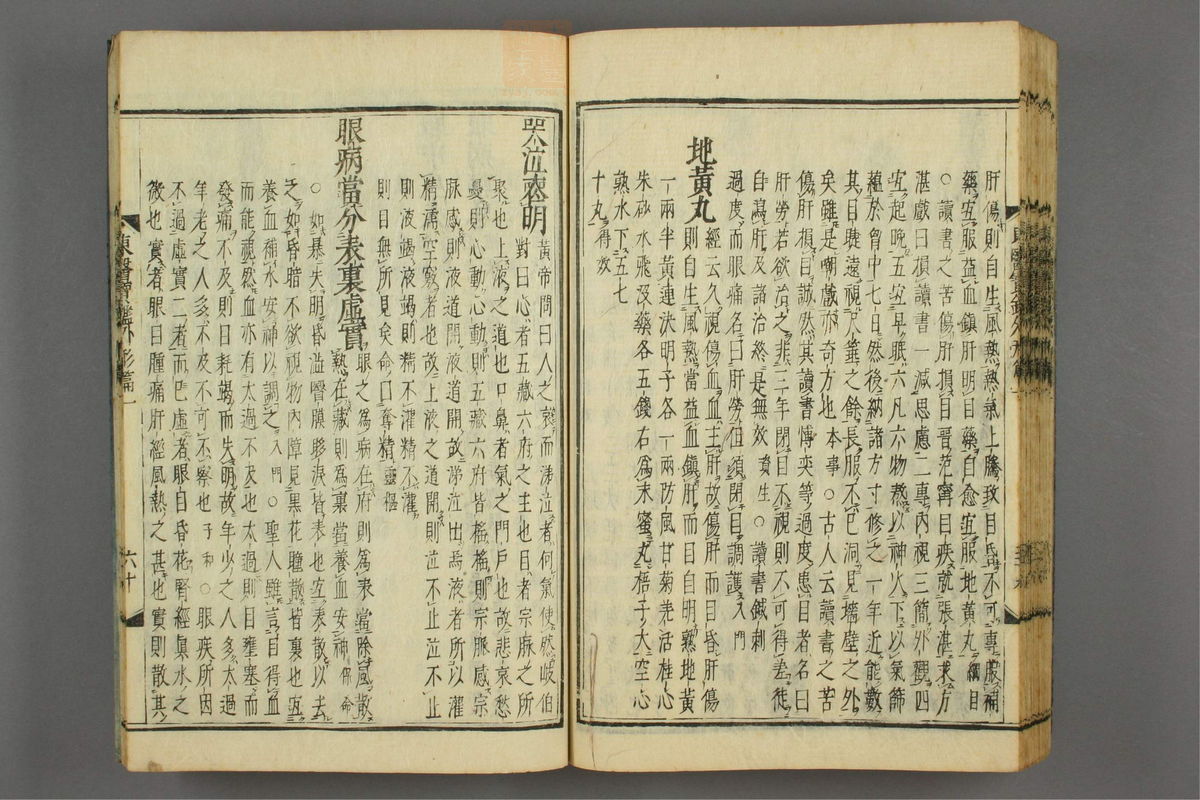 肝傷則自生風熱熱氣上騰致目昏不可專服補
藥宜服益血鎭肝明目藥自愈宜服地黃丸綱目
○讀書之苦傷肝損目晉范甯目疾就張湛求方
湛戲曰損讀書一減思慮二專內視三簡外觀四
宜起晩五宜早眠六凡六物熬以神火下以氣篩
蘊於胷中七日然後納諸方寸修之一年近能數
其目睫遠視尺箠之餘長服不已洞見墻壁之外
矣雖是嘲戲亦奇方也本事○古人云讀書之苦
傷肝損目誠然其讀書博奕等過度患目者名曰
肝勞若欲治之非三年閉目不視則不可得差徒
自瀉肝及諸治終是無效資生○讀書鍼刺
過度而眼痛名曰肝勞但須閉目調護入門
地黃丸經云久視傷血血主肝故傷肝而目昏肝傷
則自生風熱當益血鎭肝而目自明熟地黃
一兩半黃連決明子各一兩防風甘菊羌活桂心
朱砂水飛沒藥各五錢右爲末蜜丸梧子大空心
熟水下五七
十丸得效
哭泣喪明黃帝問曰人之哀而涕泣者何氣使然岐伯
對曰心者五藏六府之主也目者宗脉之所
聚也上液之道也口鼻者氣之門戶也故悲哀愁
憂則心動心動則五藏六府皆搖搖則宗脈感宗
脉感則液道開液道開故涕泣出焉液者所以灌
精濡空竅者也故上液之道開則泣不止泣不止
則液竭液竭則精不灌精不灌
則目無所見矣命曰奪精靈樞
眼病當分表裏虛實眼之爲病在府則爲表當除風散
熱在藏則爲裏當養血安神保命
○如暴失明昏澁瞖膜眵淚皆表也宜表散以去
之如昏暗不欲視物內障見黑花瞳散皆裏也宜
養血補水安神以調之入門○聖人雖言目得血
而能視然血亦有太過不及也太過則目壅塞而
發痛不及則目耗竭而失明故年少之人多太過
年老之人多不及不可不察也子和○眼疾所因
不過虛實二者而已虛者眼目昏花腎經眞水之
微也實者眼目腫痛肝經風熱之甚也實則散其
東醫寶鑑外形篇一
六十